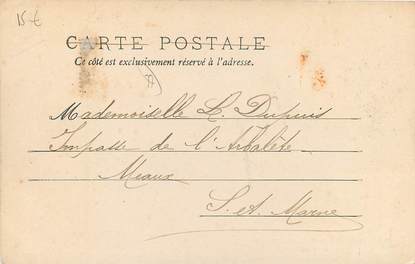 15 €
CARTE POSTALE
Ce côté est exclusivement réservé à l'adresse.
Mademoiselle L. Dupuis
Impasse de l'Arbalète
Meaux
S. et. Marne